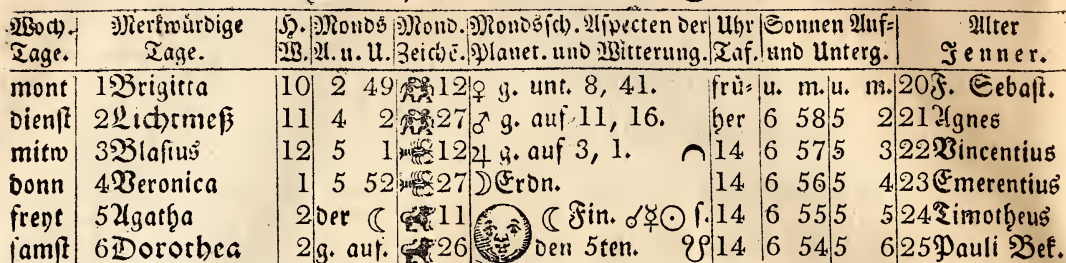 Woch. Merkwürdige H. Monds Mond. Mondsch. Aspecten der Uhr Sonnen Auf= Alter
Tage. Tage. W. A. u. U. Zeichē. Planet. und Witterung. Taf. und Unterg. Jenner.
mont 1 Brigitta 10 2 49 12 ♀ g. unt. 8, 41. frü= u. m. u. m. 20 F. Sebast.
dienst 2 Lichtmeß 11 4 2 27 ♂ g. auf 11, 16. her 6 58 5 2 21 Agnes
mitw 3 Blasius 12 5 1 12 ♃ g. auf 3, 1. 14 6 57 5 3 22 Vincentius
donn 4 Veronica 1 5 52 27 ☽ Erdn. 14 6 56 5 4 23 Emerentius
freyt 5 Agatha 2 der ☾ 11 ☾ Fin. ☌☿☉ s. 14 6 55 5 5 24 Timotheus
samst 6 Dorothea 2 g. auf. 26 den 5ten. 14 6 54 5 6 25 Pauli Bek.